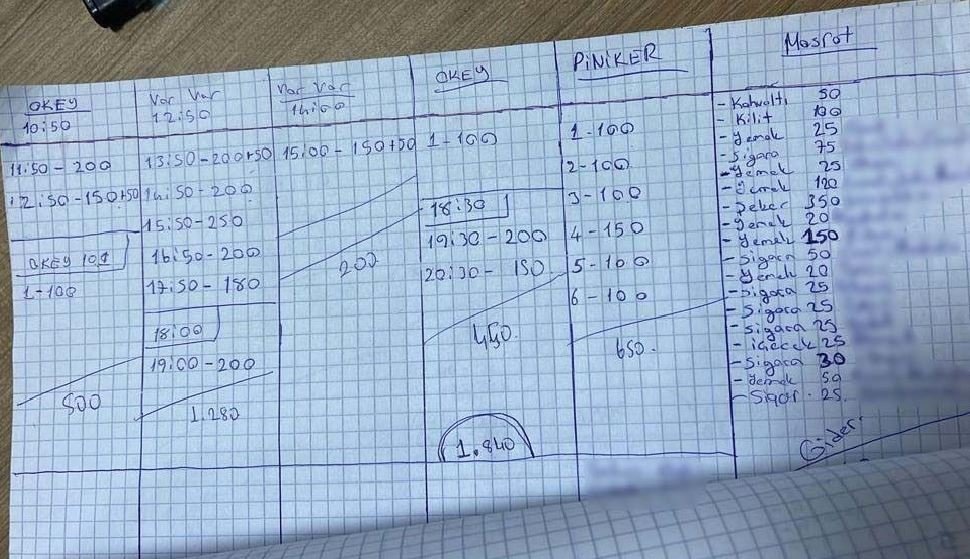 OKEY
10:50
11:50-200
12:50-150+50
OKEY 101
1-100
500
Var Var
12:50
13:50-200+50
14:50-200
15:50-250
16:50-200
17:50-180
18:00
19:00-200
1.280
Var Var
14:00
15:00-150+50
200
OKEY
1-100
18:30
19:30-200
20:30-150
450.
1.840
PiNiKER
1-100
2-100
3-100
4-150
5-100
6-100
650.
Masrat
- Kahvaltı 50
- Kilit 100
- Yemek 25
- Sigara 75
- Yemek 25
- Yemek 120
- Şeker 350
- Yemek 20
- Yemek 150
- Sigara 50
- Yemek 20
- Sigara 25
- Sigara 25
- Sigara 25
- içecek 25
- Sigara 30
- Yemek 50
- Sigar. 25
Gider